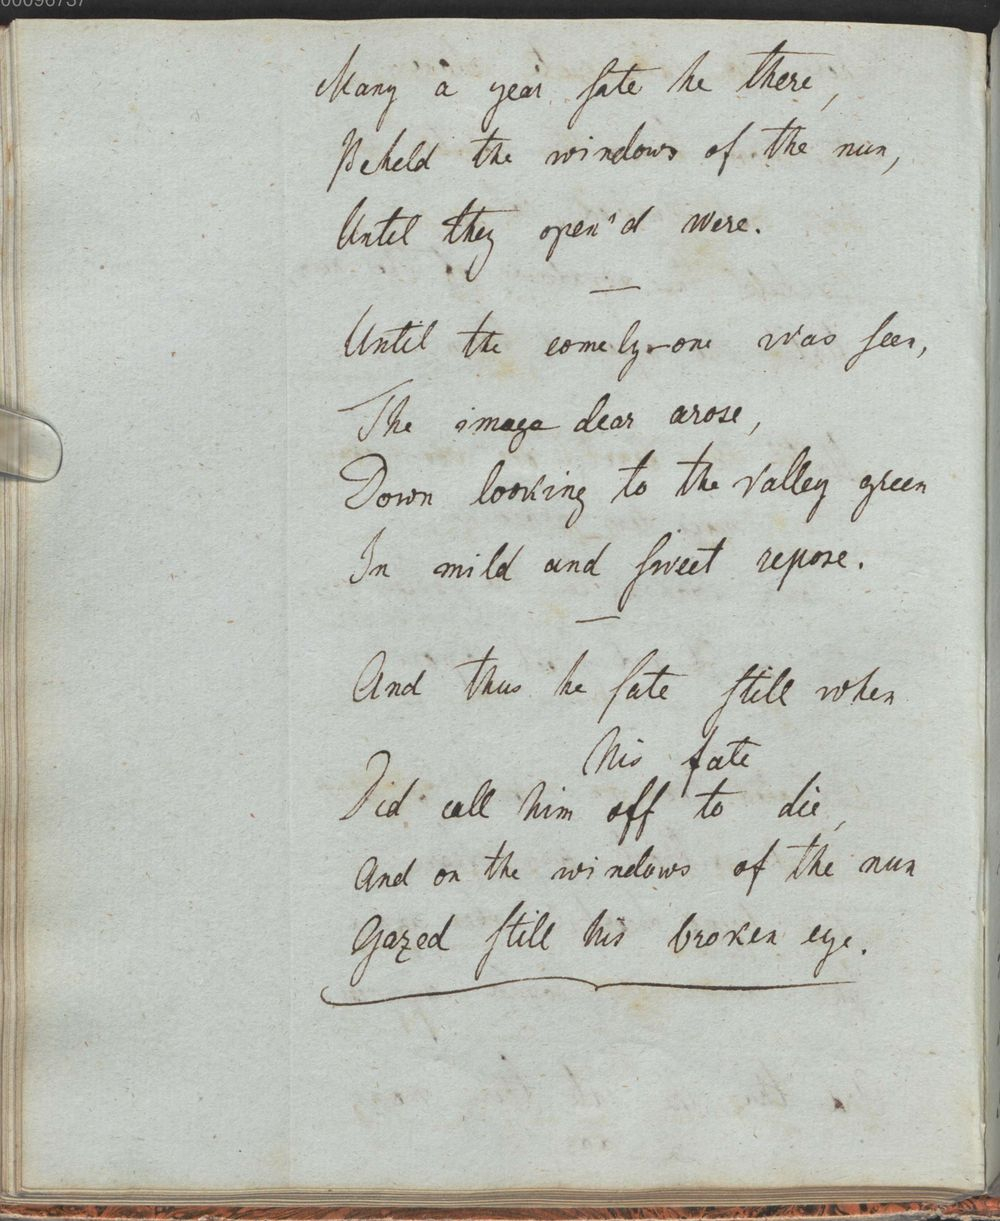 00096737
Many a year sate he there,
Beheld the windows of the nun,
Until they open'd were.
Until the comely-one was seen,
The image dear arose,
Down looking to the valley green
In mild and sweet repose.
And thus he sate still when
his fate
Did call him off to die,
And on the windows of the nun
Gazed still his broken eye.